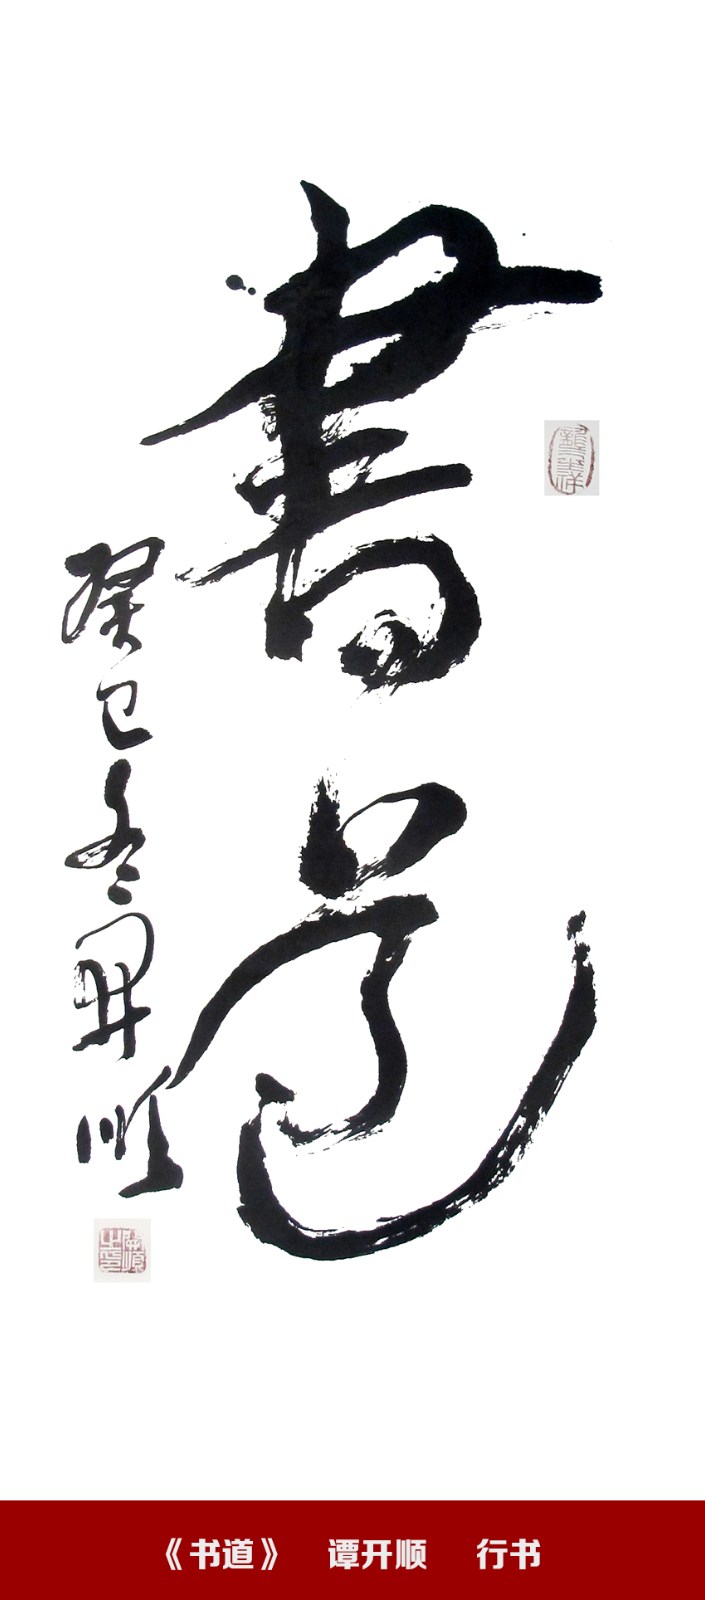 書道
癸巳冬開順
《书道》 谭开顺 行书